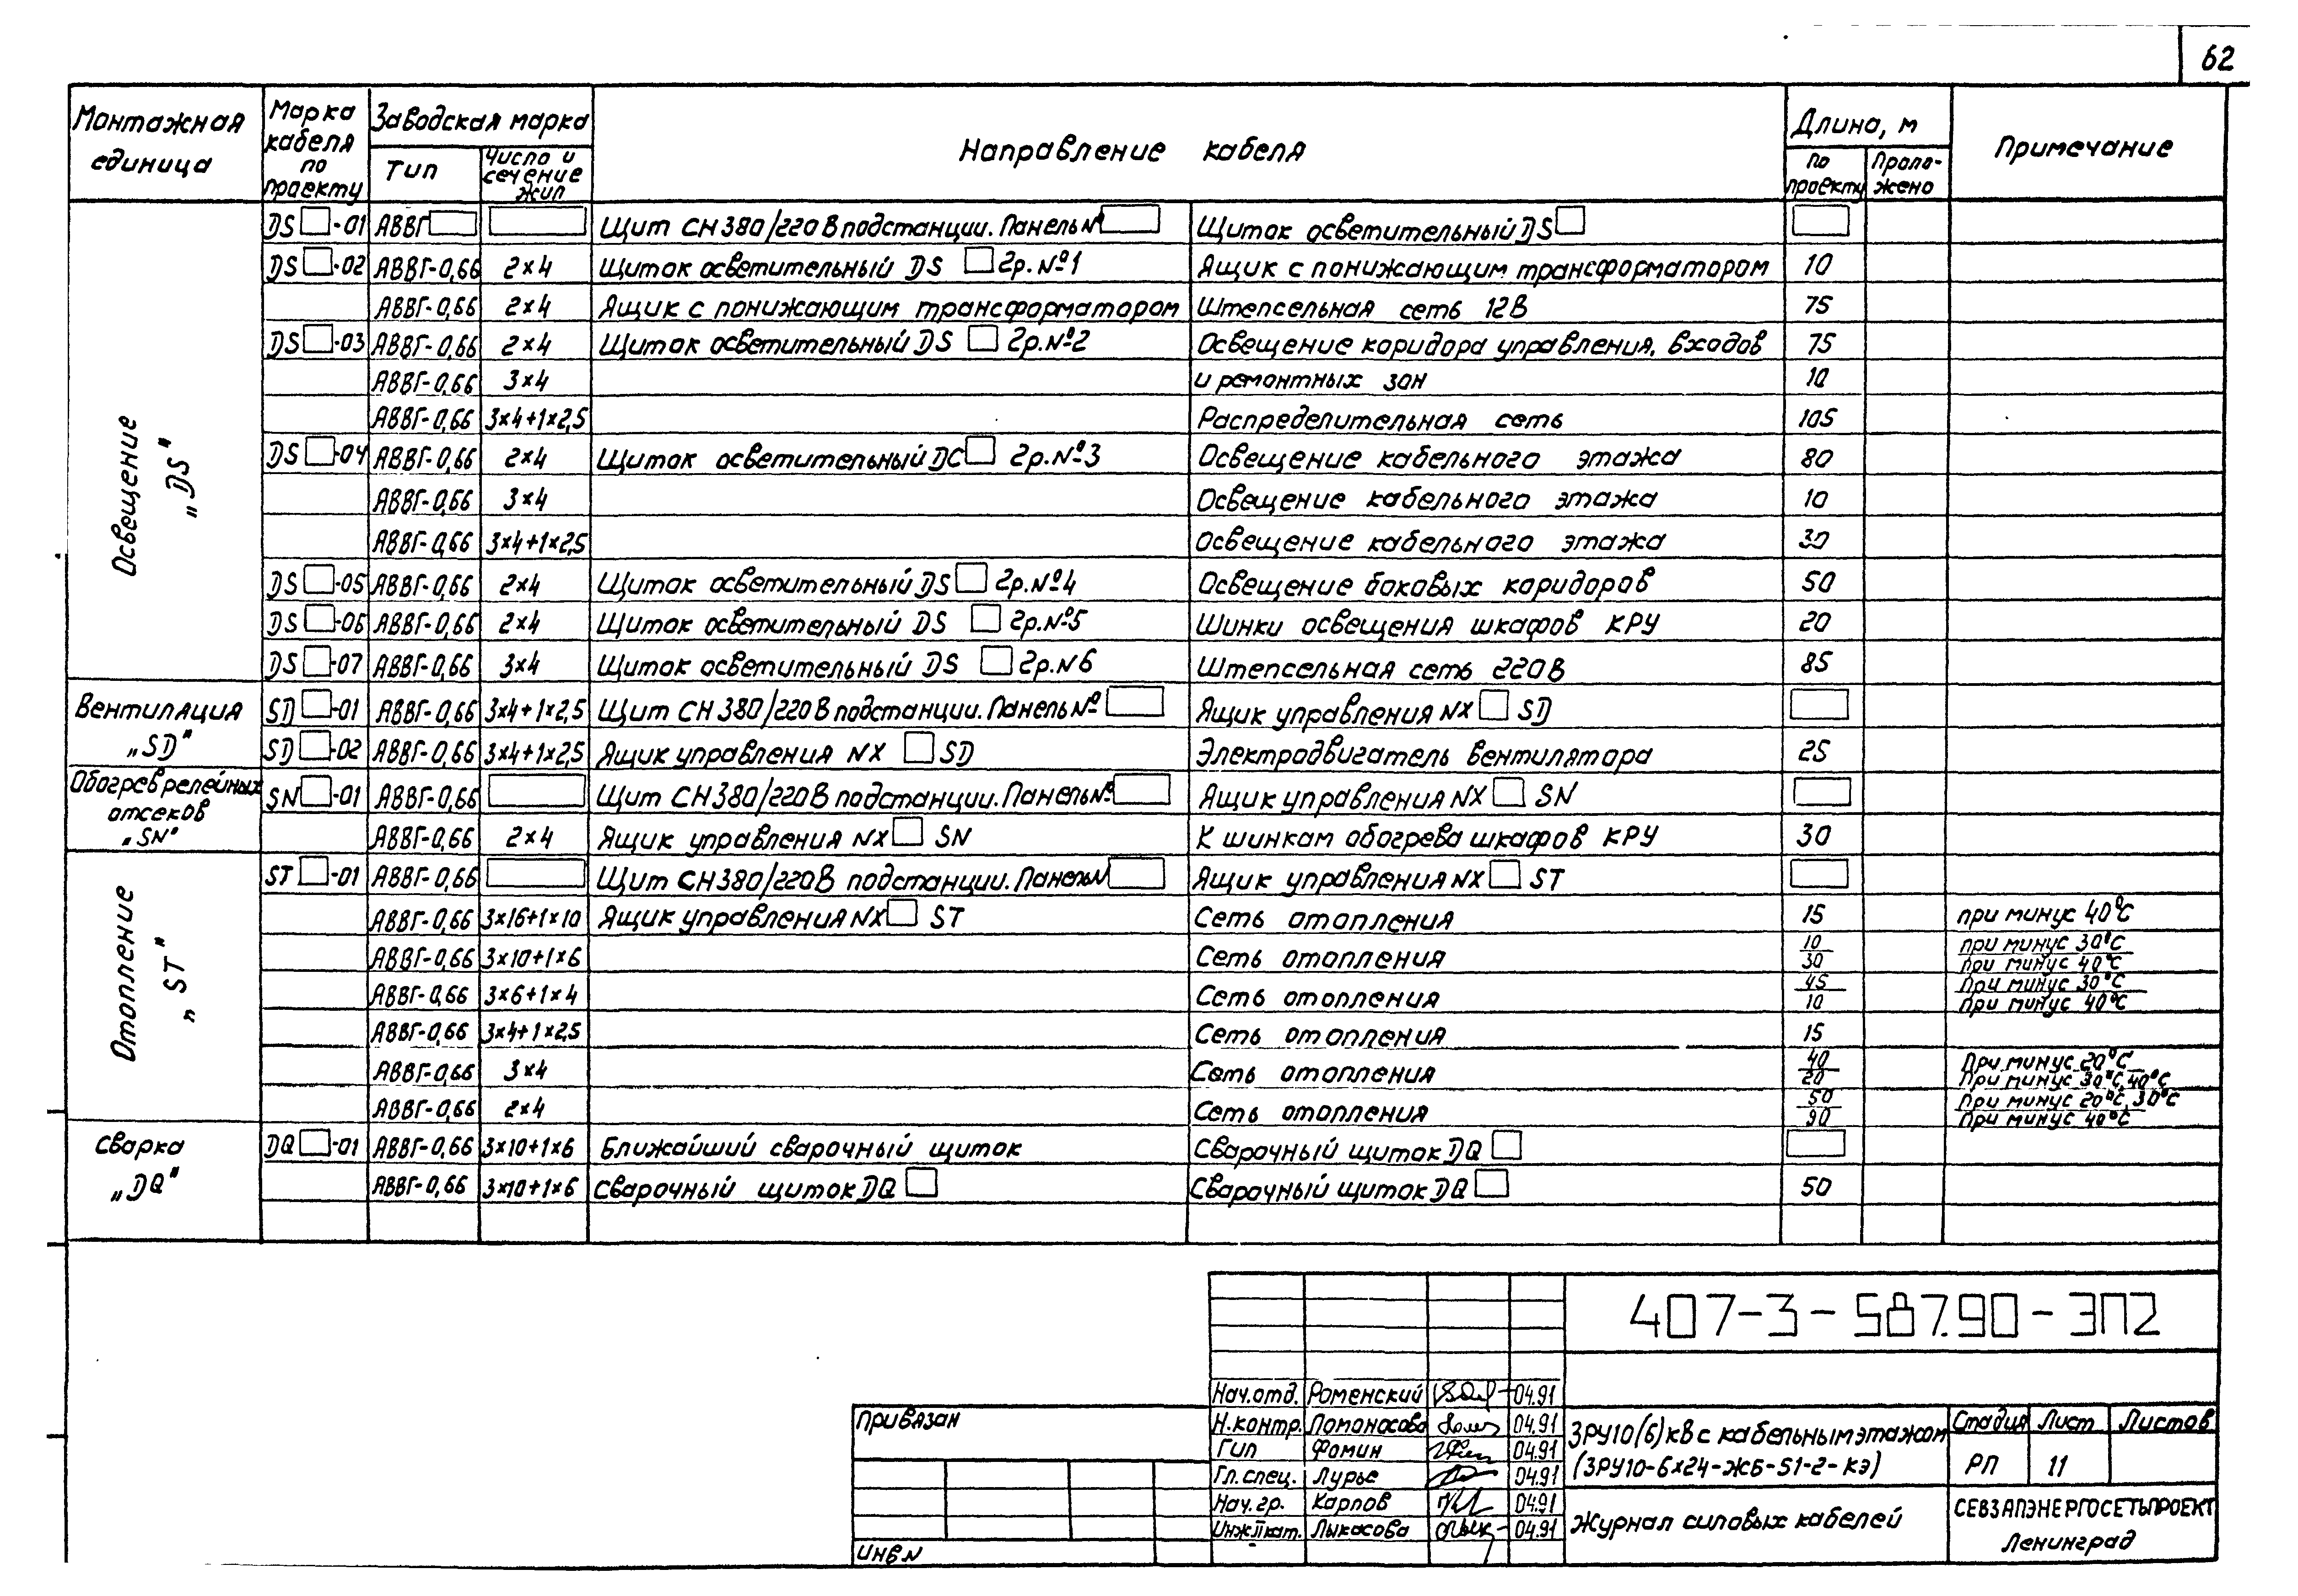 62
Монтажная единица | Марка кабеля по проекту | Заводская марка | Направление кабеля | Длина, м | Примечание
Тип | Число и сечение жил | По проекту | Проложено
Освещение „DS"
DS □-01 | АВВГ □ | □ | Щит СН 380/220 В подстанции. Панель № □ | Щиток осветительный DS □ | □
DS □-02 | АВВГ-0,66 | 2×4 | Щиток осветительный DS □ гр. №1 | Ящик с понижающим трансформатором | 10
АВВГ-0,66 | 2×4 | Ящик с понижающим трансформатором | Штепсельная сеть 12В | 75
DS □-03 | АВВГ-0,66 | 2×4 | Щиток осветительный DS □ гр. №2 | Освещение коридора управления, входов | 75
АВВГ-0,66 | 3×4 | и ремонтных зон | 10
АВВГ-0,66 | 3×4+1×2,5 | Распределительная сеть | 105
DS □-04 | АВВГ-0,66 | 2×4 | Щиток осветительный DC □ гр. №3 | Освещение кабельного этажа | 80
АВВГ-0,66 | 3×4 | Освещение кабельного этажа | 10
АВВГ-0,66 | 3×4+1×2,5 | Освещение кабельного этажа | 30
DS □-05 | АВВГ-0,66 | 2×4 | Щиток осветительный DS □ гр. №4 | Освещение боковых коридоров | 50
DS □-06 | АВВГ-0,66 | 2×4 | Щиток осветительный DS □ гр. №5 | Шинки освещения шкафов КРУ | 20
DS □-07 | АВВГ-0,66 | 3×4 | Щиток осветительный DS □ гр. N6 | Штепсельная сеть 220В | 85
Вентиляция „SD"
SD □-01 | АВВГ-0,66 | 3×4+1×2,5 | Щит СН 380/220 В подстанции. Панель № □ | Ящик управления NX □ SD | □
SD □-02 | АВВГ-0,66 | 3×4+1×2,5 | Ящик управления NX □ SD | Электродвигатель вентилятора | 25
Обогрев релейных отсеков „SN"
SN □-01 | АВВГ-0,66 | □ | Щит СН 380/220 В подстанции. Панель № □ | Ящик управления NX □ SN | □
АВВГ-0,66 | 2×4 | Ящик управления NX □ SN | К шинкам обогрева шкафов КРУ | 30
Отопление „ST"
ST □-01 | АВВГ-0,66 | □ | Щит СН 380/220 В подстанции. Панель N □ | Ящик управления NX □ ST | □
АВВГ-0,66 | 3×16+1×10 | Ящик управления NX □ ST | Сеть отопления | 15 | при минус 40°С
АВВГ-0,66 | 3×10+1×6 | Сеть отопления | 10/30 | при минус 30°С / при минус 40°С
АВВГ-0,66 | 3×6+1×4 | Сеть отопления | 45/10 | При минус 30°С / при минус 40°С
АВВГ-0,66 | 3×4+1×2,5 | Сеть отопления | 15
АВВГ-0,66 | 3×4 | Сеть отопления | 40/20 | При минус 20°С / При минус 30°С, 40°С
АВВГ-0,66 | 2×4 | Сеть отопления | 50/90 | При минус 20°С, 30°С / При минус 40°С
Сварка „DQ"
DQ □-01 | АВВГ-0,66 | 3×10+1×6 | Ближайший сварочный щиток | Сварочный щиток DQ □ | □
АВВГ-0,66 | 3×10+1×6 | Сварочный щиток DQ □ | Сварочный щиток DQ □ | 50
407-3-587.90-ЭП2
Нач. отд. | Роменский | 04.91
Н. контр. | Ломоносова | 04.91
Гип | Фомин | 04.91
Гл. спец. | Лурье | 04.91
Нач. гр. | Карпов | 04.91
Инж.II кат. | Лыкасова | 04.91
Привязан
Инв N
ЗРУ10(6) кВ с кабельным этажом
(ЗРУ10-6×24-ЖБ-51-2-КЭ)
Стадия | Лист | Листов
РП | 11
Журнал силовых кабелей
СЕВЗАПЭНЕРГОСЕТЬПРОЕКТ
Ленинград